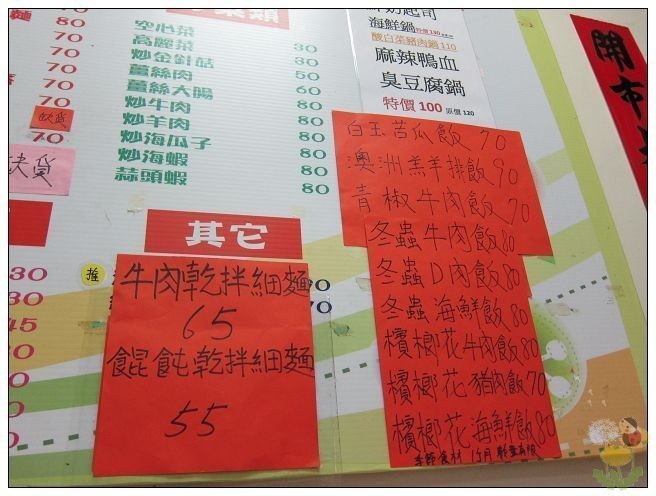 空心菜
高麗菜 30
炒金針菇 80
薑絲肉 50
薑絲大腸 60
炒牛肉 80
炒羊肉 80
炒海瓜子 80
炒海蝦 80
蒜頭蝦 80
70
70
70
70
70
缺貨
缺貨
海鮮鍋 特價130
酸白菜豬肉鍋110
麻辣鴨血
臭豆腐鍋
特價 100 原價 120
開市
其它
推
牛肉乾拌細麵
65
餛飩乾拌細麵
55
白玉苦瓜飯 70
澳洲羔羊排飯 90
青椒牛肉飯 70
冬蟲牛肉飯 80
冬蟲D肉飯 80
冬蟲海鮮飯 80
檳榔花牛肉飯 80
檳榔花豬肉飯 70
檳榔花海鮮飯 80
季節食材
30
30
45
30